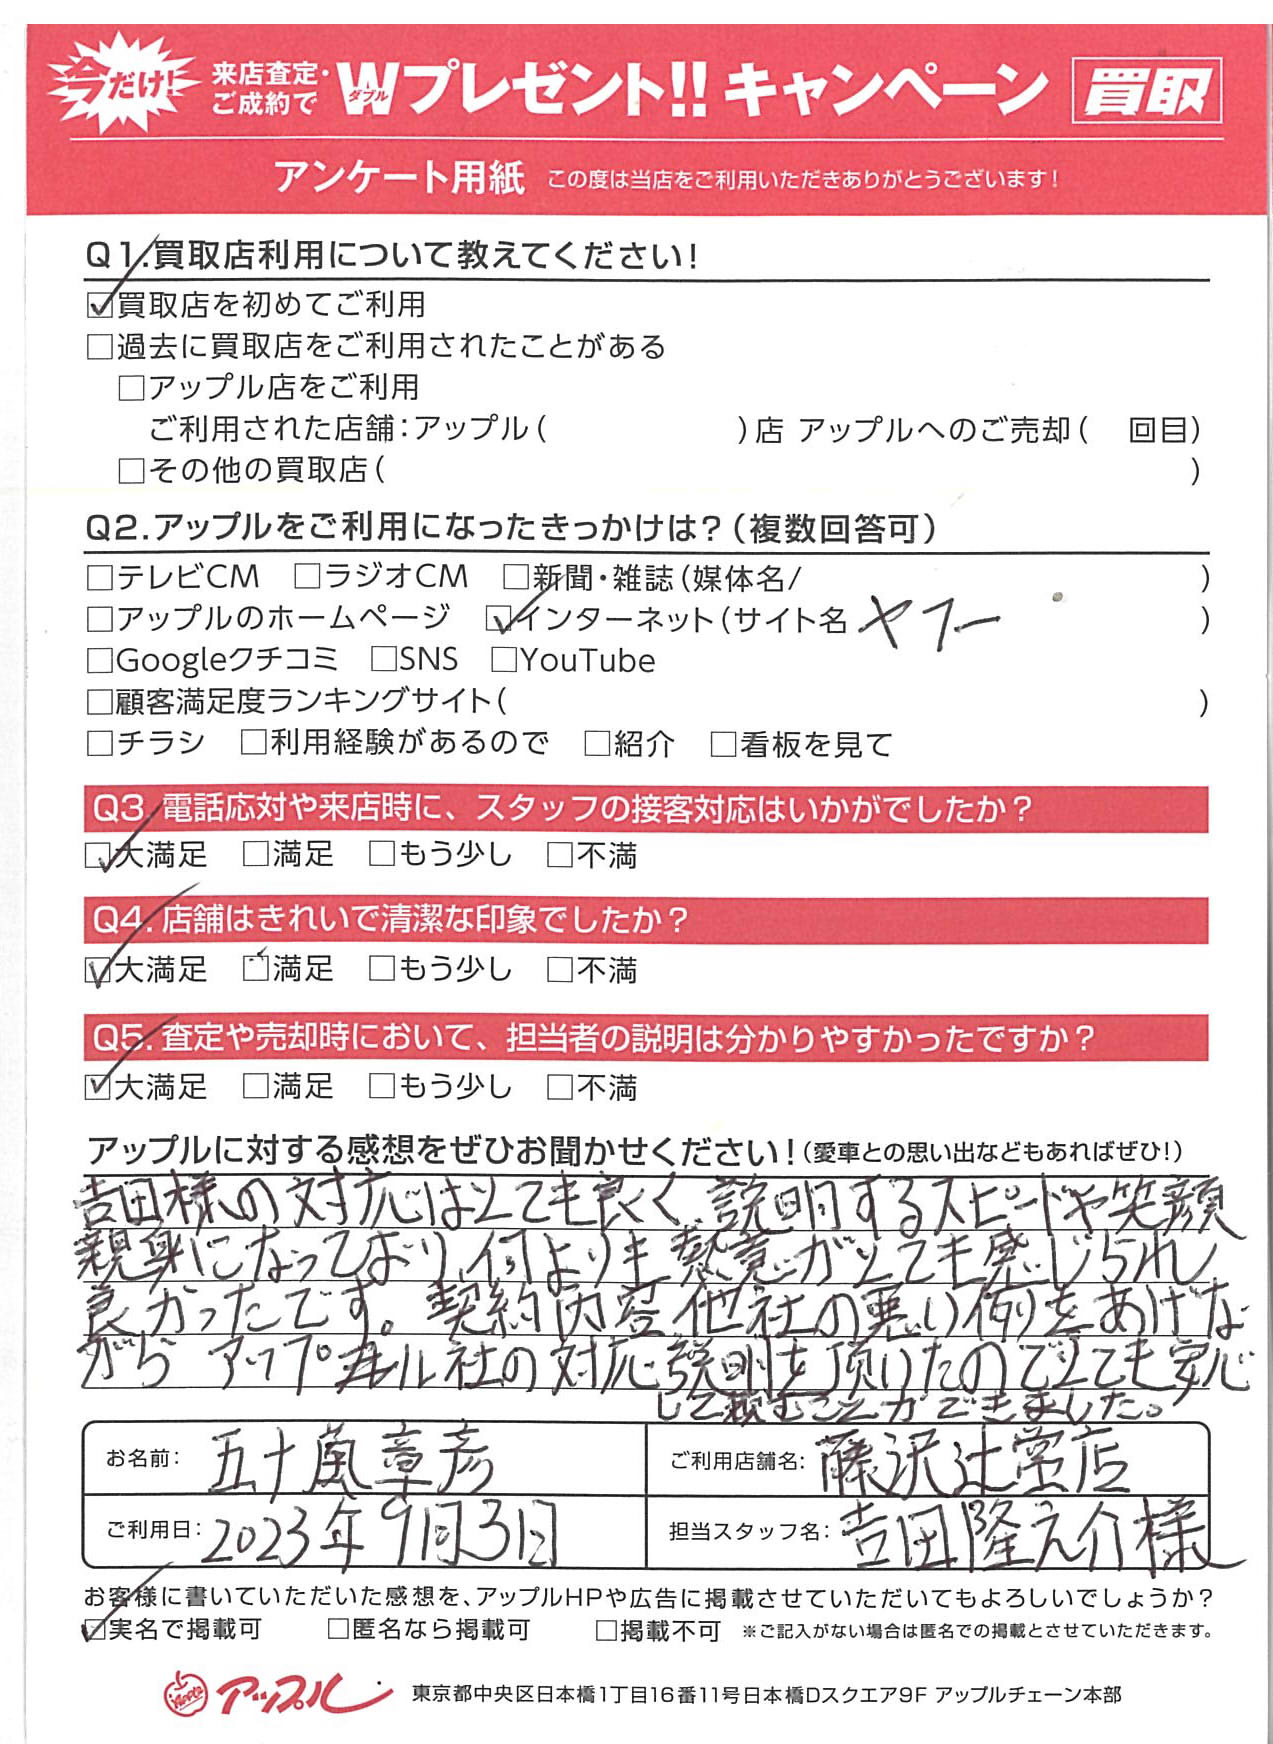 今だけ!
来店査定・
ご成約で
Wプレゼント!! キャンペーン 買取
ダブル
アンケート用紙 この度は当店をご利用いただきありがとうございます!
Q1.買取店利用について教えてください!
☑買取店を初めてご利用
□過去に買取店をご利用されたことがある
□アップル店をご利用
ご利用された店舗:アップル( )店 アップルへのご売却( 回目)
□その他の買取店( )
Q2.アップルをご利用になったきっかけは?(複数回答可)
□テレビCM □ラジオCM □新聞・雑誌(媒体名/ )
□アップルのホームページ ☑インターネット(サイト名 ヤフー )
□Googleクチコミ □SNS □YouTube
□顧客満足度ランキングサイト( )
□チラシ □利用経験があるので □紹介 □看板を見て
Q3.電話応対や来店時に、スタッフの接客対応はいかがでしたか?
☑大満足 □満足 □もう少し □不満
Q4.店舗はきれいで清潔な印象でしたか?
☑大満足 □満足 □もう少し □不満
Q5.査定や売却時において、担当者の説明は分かりやすかったですか?
☑大満足 □満足 □もう少し □不満
アップルに対する感想をぜひお聞かせください!(愛車との思い出などもあればぜひ!)
吉田様の対応はとても良く、説明するスピードや笑顔
親身になっており、何よりも熱意がとても感じられ
良かったです。契約内容、他社の悪い例をあげな
がら アップル社の対応説明を頂けたのでとても安心
して頼むことができました。
お名前: 五十嵐章彦 ご利用店舗名: 藤沢辻堂店
ご利用日: 2023年9月3日 担当スタッフ名: 吉田隆之介様
お客様に書いていただいた感想を、アップルHPや広告に掲載させていただいてもよろしいでしょうか?
☑実名で掲載可 □匿名なら掲載可 □掲載不可 ※ご記入がない場合は匿名での掲載とさせていただきます。
Apple アップル 東京都中央区日本橋1丁目16番11号日本橋Dスクエア9F アップルチェーン本部